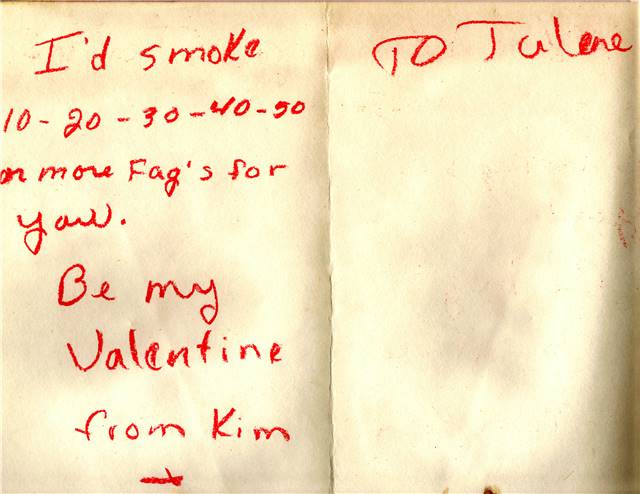 I'd smoke
10 - 20 - 30 - 40 - 50
or more Fag's for
you.
Be my
Valentine
from Kim
TO Julene